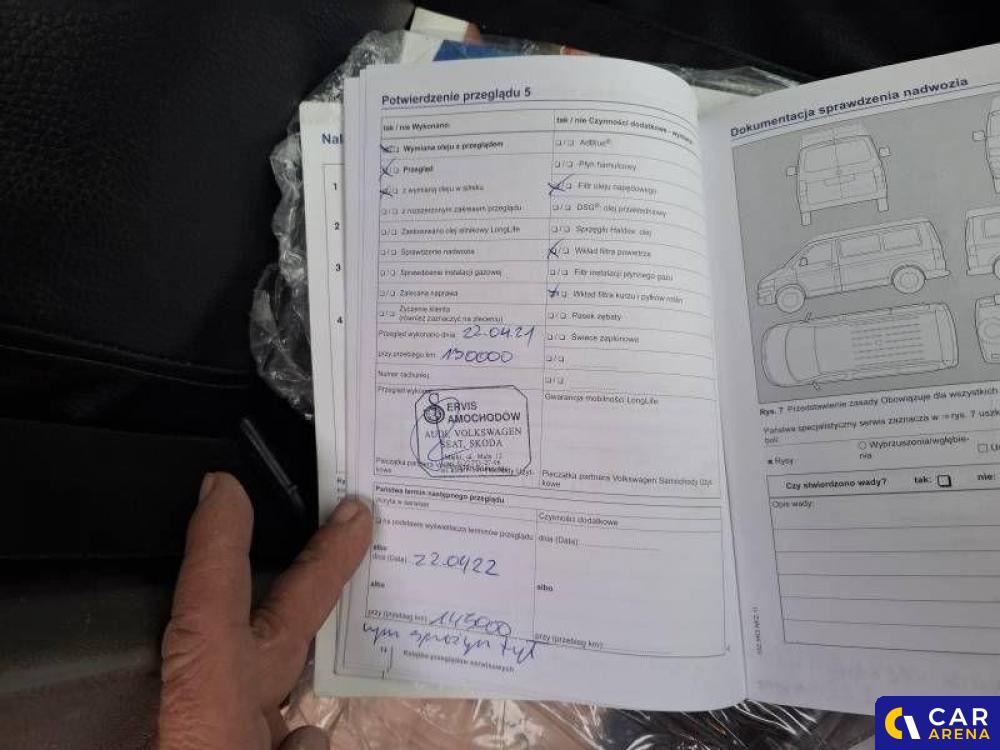 Potwierdzenie przeglądu 5
tak / nie Wykonano:
Wymiana oleju z przeglądem
Przegląd
z wymianą oleju w silniku
z rozszerzonym zakresem przeglądu
Zastosowano olej silnikowy LongLife
Sprawdzenie nadwozia
Sprawdzenie instalacji gazowej
Zalecana naprawa
Życzenie klienta
(również zaznaczyć na zleceniu)
Przegląd wykonano dnia 22.04.21
przy przebiegu km 130000
Numer rachunku
Przegląd wykonał
SERVIS
SAMOCHODÓW
AUDI, VOLKSWAGEN
SEAT, SKODA
Pieczątka partnera
kowe
Państwa termin następnego przeglądu
na podstawie wyświetlacza terminów przeglądu
albo
dnia (Data): 22.04.22
albo
przy (przebieg km) 145000
Książka przeglądów serwisowych
tak / nie Czynności dodatkowe - wymiana
AdBlue®
Płyn hamulcowy
Filtr oleju napędowego
DSG®: olej przekładniowy
Sprzęgło Haldex: olej
Wkład filtra powietrza
Filtr instalacji płynnego gazu
Wkład filtra kurzu i pyłków roślin
Pasek zębaty
Świece zapłonowe
Gwarancja mobilności LongLife
Pieczątka partnera Volkswagen Samochody Użyt-
kowe
Czynności dodatkowe
dnia (Data):
albo
przy (przebieg km):
Nal
1
2
3
4
Dokumentacja sprawdzenia nadwozia
Rys. 7 Przedstawienie zasady Obowiązuje dla wszystkich
Państwa specjalistyczny serwis zaznacza w ⇒ rys. 7 uszk
Rysy:
Wybrzuszenia/wgłębie-
nia
Czy stwierdzono wady? tak: nie:
Opis wady:
CAR
ARENA